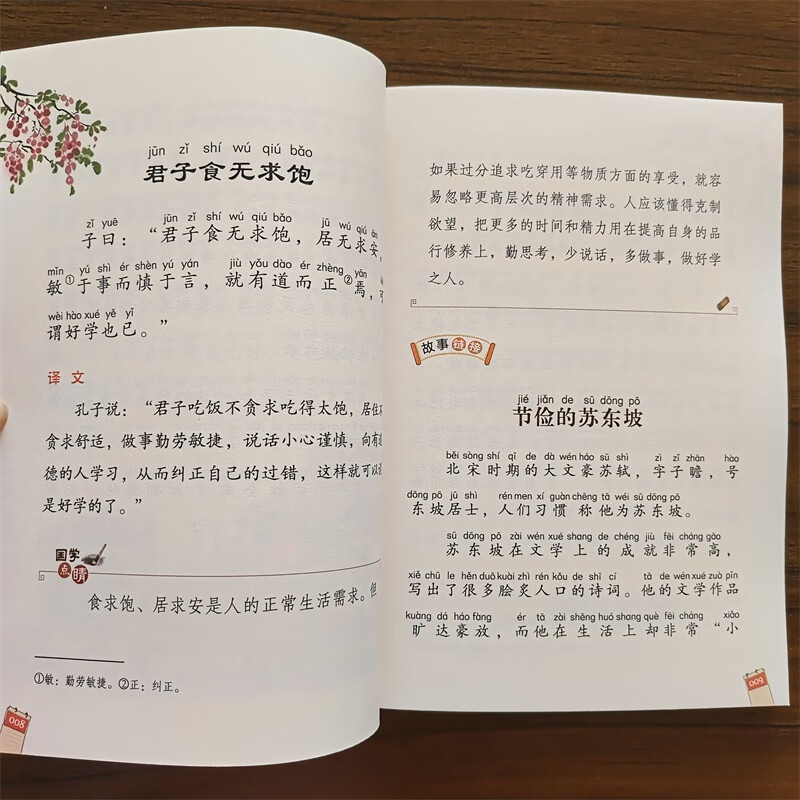 jūn zǐ shí wú qiú bǎo
君子食无求饱
zǐ yuē jūn zǐ shí wú qiú bǎo jū wú qiú ān
子曰：“君子食无求饱，居无求安，
mǐn yú shì ér shèn yú yán jiù yǒu dào ér zhèng yān
敏①于事而慎于言，就有道而正②焉，
wèi hào xué yě yǐ
谓好学也已。”
译文
孔子说：“君子吃饭不贪求吃得太饱，居住不
贪求舒适，做事勤劳敏捷，说话小心谨慎，向有道
德的人学习，从而纠正自己的过错，这样就可以
是好学的了。”
国学
点睛
食求饱、居求安是人的正常生活需求。但
①敏：勤劳敏捷。②正：纠正。
008
如果过分追求吃穿用等物质方面的享受，就容
易忽略更高层次的精神需求。人应该懂得克制
欲望，把更多的时间和精力用在提高自身的品
行修养上，勤思考，少说话，多做事，做好学
之人。
故事链接
jié jiǎn de sū dōng pō
节俭的苏东坡
běi sòng shí qī de dà wén háo sū shì zì zǐ zhān hào
北宋时期的大文豪苏轼，字子瞻，号
dōng pō jū shì rén men xí guàn chēng tā wéi sū dōng pō
东坡居士，人们习惯称他为苏东坡。
sū dōng pō zài wén xué shang de chéng jiù fēi cháng gāo
苏东坡在文学上的成就非常高，
xiě chū le hěn duō kuài zhì rén kǒu de shī cí tā de wén xué zuò pǐn
写出了很多脍炙人口的诗词。他的文学作品
kuàng dá háo fàng ér tā zài shēng huó shang què fēi cháng xiǎo
旷达豪放，而他在生活上却非常“小
009